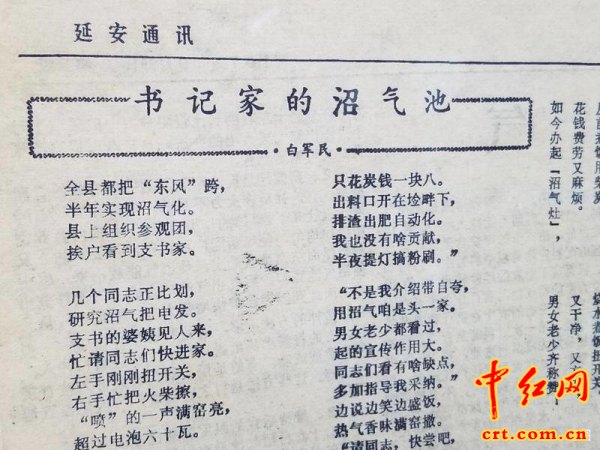 延安通讯
书记家的沼气池
·白军民·
全县都把“东风”跨，
半年实现沼气化。
县上组织参观团，
挨户看到支书家。
几个同志正比划，
研究沼气把电发。
支书的婆姨见人来，
忙请同志们快进家。
左手刚刚扭开关，
右手忙把火柴擦，
“喷”的一声满窑亮，
超过电泡六十瓦。
只花炭钱一块八。
出料口开在垃畔下，
排渣出肥自动化。
我也没有啥贡献，
半夜提灯搞粉刷。”
“不是我介绍带自夸，
用沼气咱是头一家。
男女老少都看过，
起的宣传作用大。
同志们看有啥缺点，
多加指导我采纳。”
边说边笑边盛饭，
热气香味满窑撒。
“请同志，快尝吧，
花钱费劳又麻烦。
如今办起「沼气灶」，
又干净，又
男女老少齐称赞！
中红网
crt.com.cn